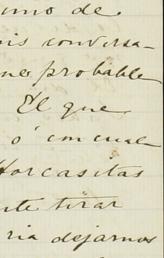 umo de
is conversa-
nes probable
El que
ó con cual
Horcasitas
te tirar
ria dejarnos